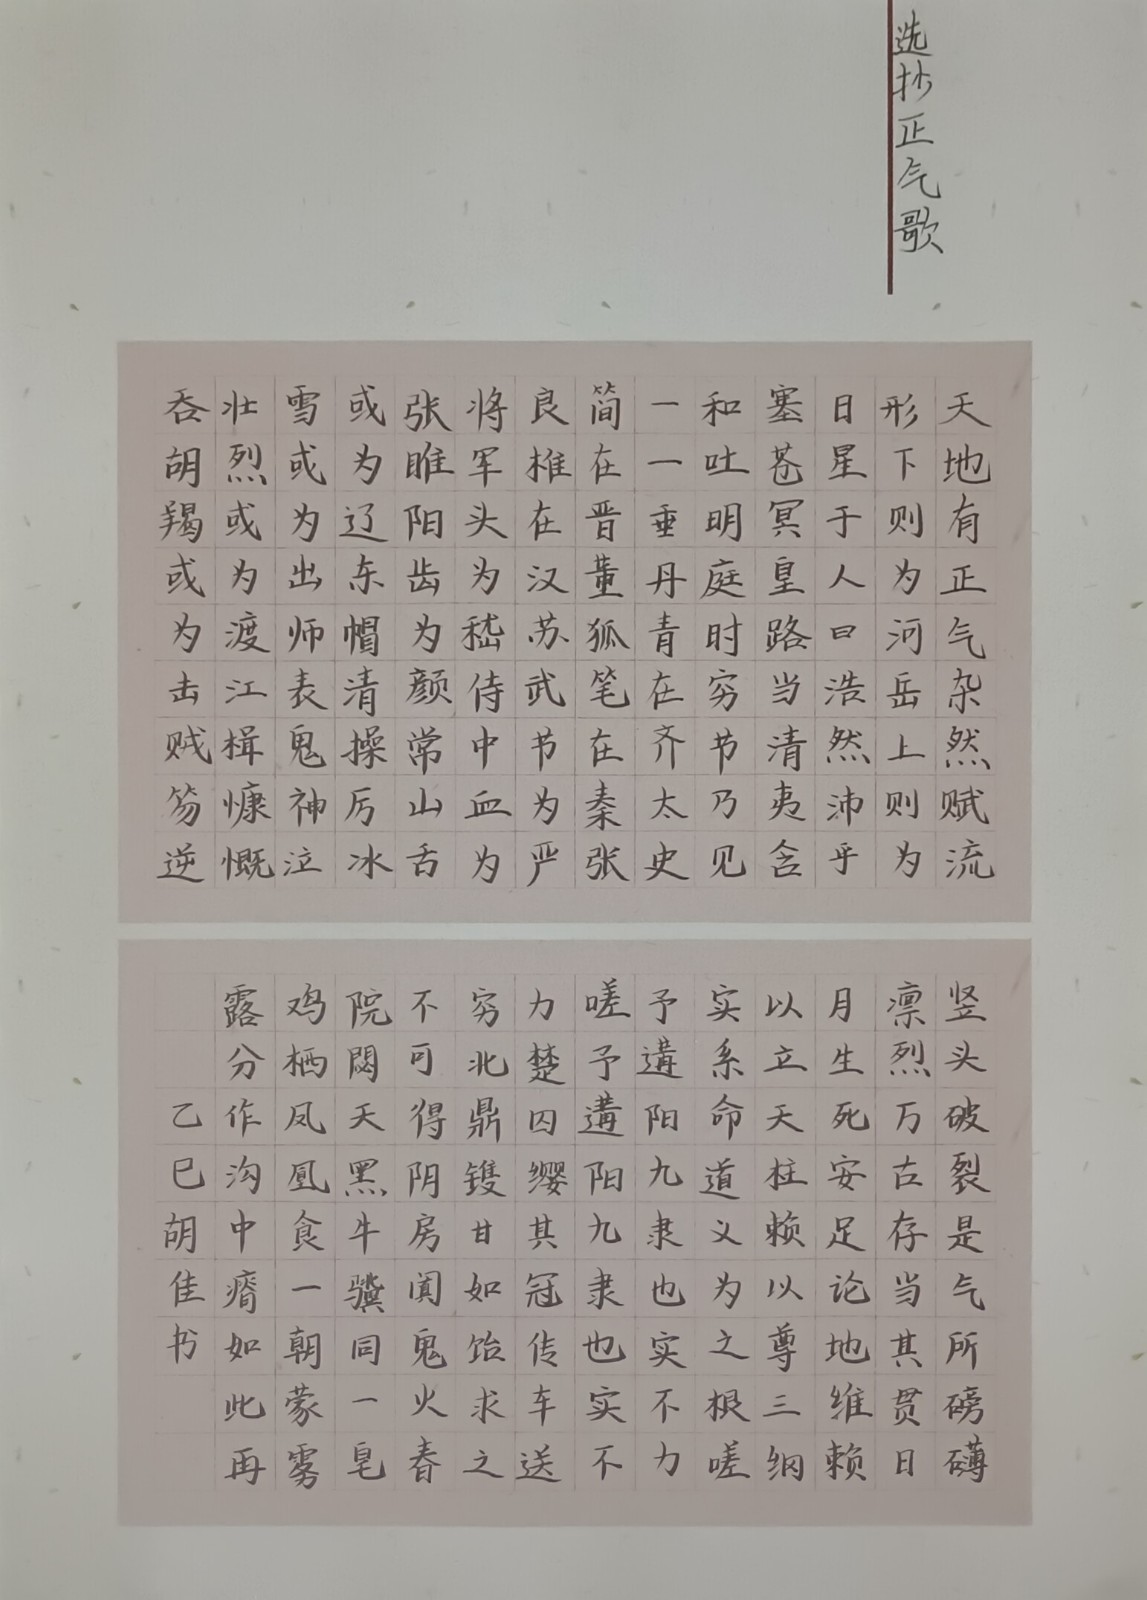 选抄正气歌
天地有正气杂然赋流
形下则为河岳上则为
日星于人曰浩然沛乎
塞苍冥皇路当清夷含
和吐明庭时穷节乃见
一一垂丹青在齐太史
简在晋董狐笔在秦张
良椎在汉苏武节为严
将军头为嵇侍中血为
张睢阳齿为颜常山舌
或为辽东帽清操厉冰
雪或为出师表鬼神泣
壮烈或为渡江楫慷慨
吞胡羯或为击贼笏逆
竖头破裂是气所磅礴
凛烈万古存当其贯日
月生死安足论地维赖
以立天柱赖以尊三纲
实系命道义为之根嗟
予遘阳九隶也实不力
嗟予遘阳九隶也实不
力楚囚缨其冠传车送
穷北鼎镬甘如饴求之
不可得阴房阒鬼火春
院閟天黑牛骥同一皂
鸡栖凤凰食一朝蒙雾
露分作沟中瘠如此再
乙巳胡佳书